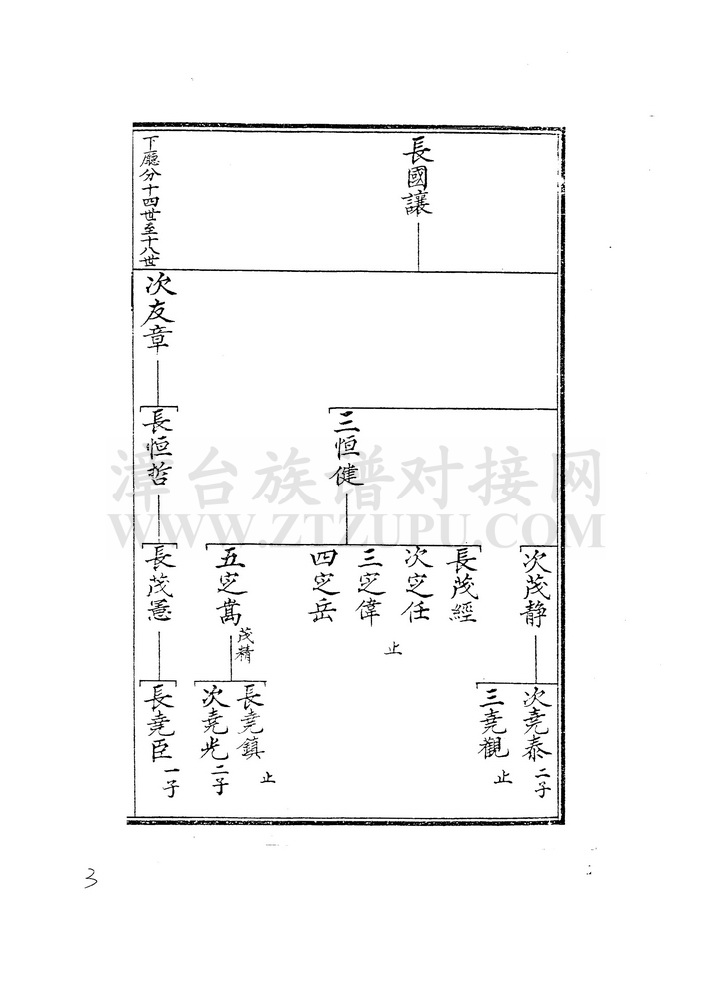 長國讓
下廳分十四世至十八世
次友章
三恒健
長恒哲
次茂靜
長茂經
次定任
三定偉
止
四定岳
五定嵩
茂精
長茂憲
次堯泰
二子
三堯觀
止
長堯鎮
止
次堯光
二子
長堯臣
一子
漳台族谱对接网
WWW.ZTZUPU.COM
3